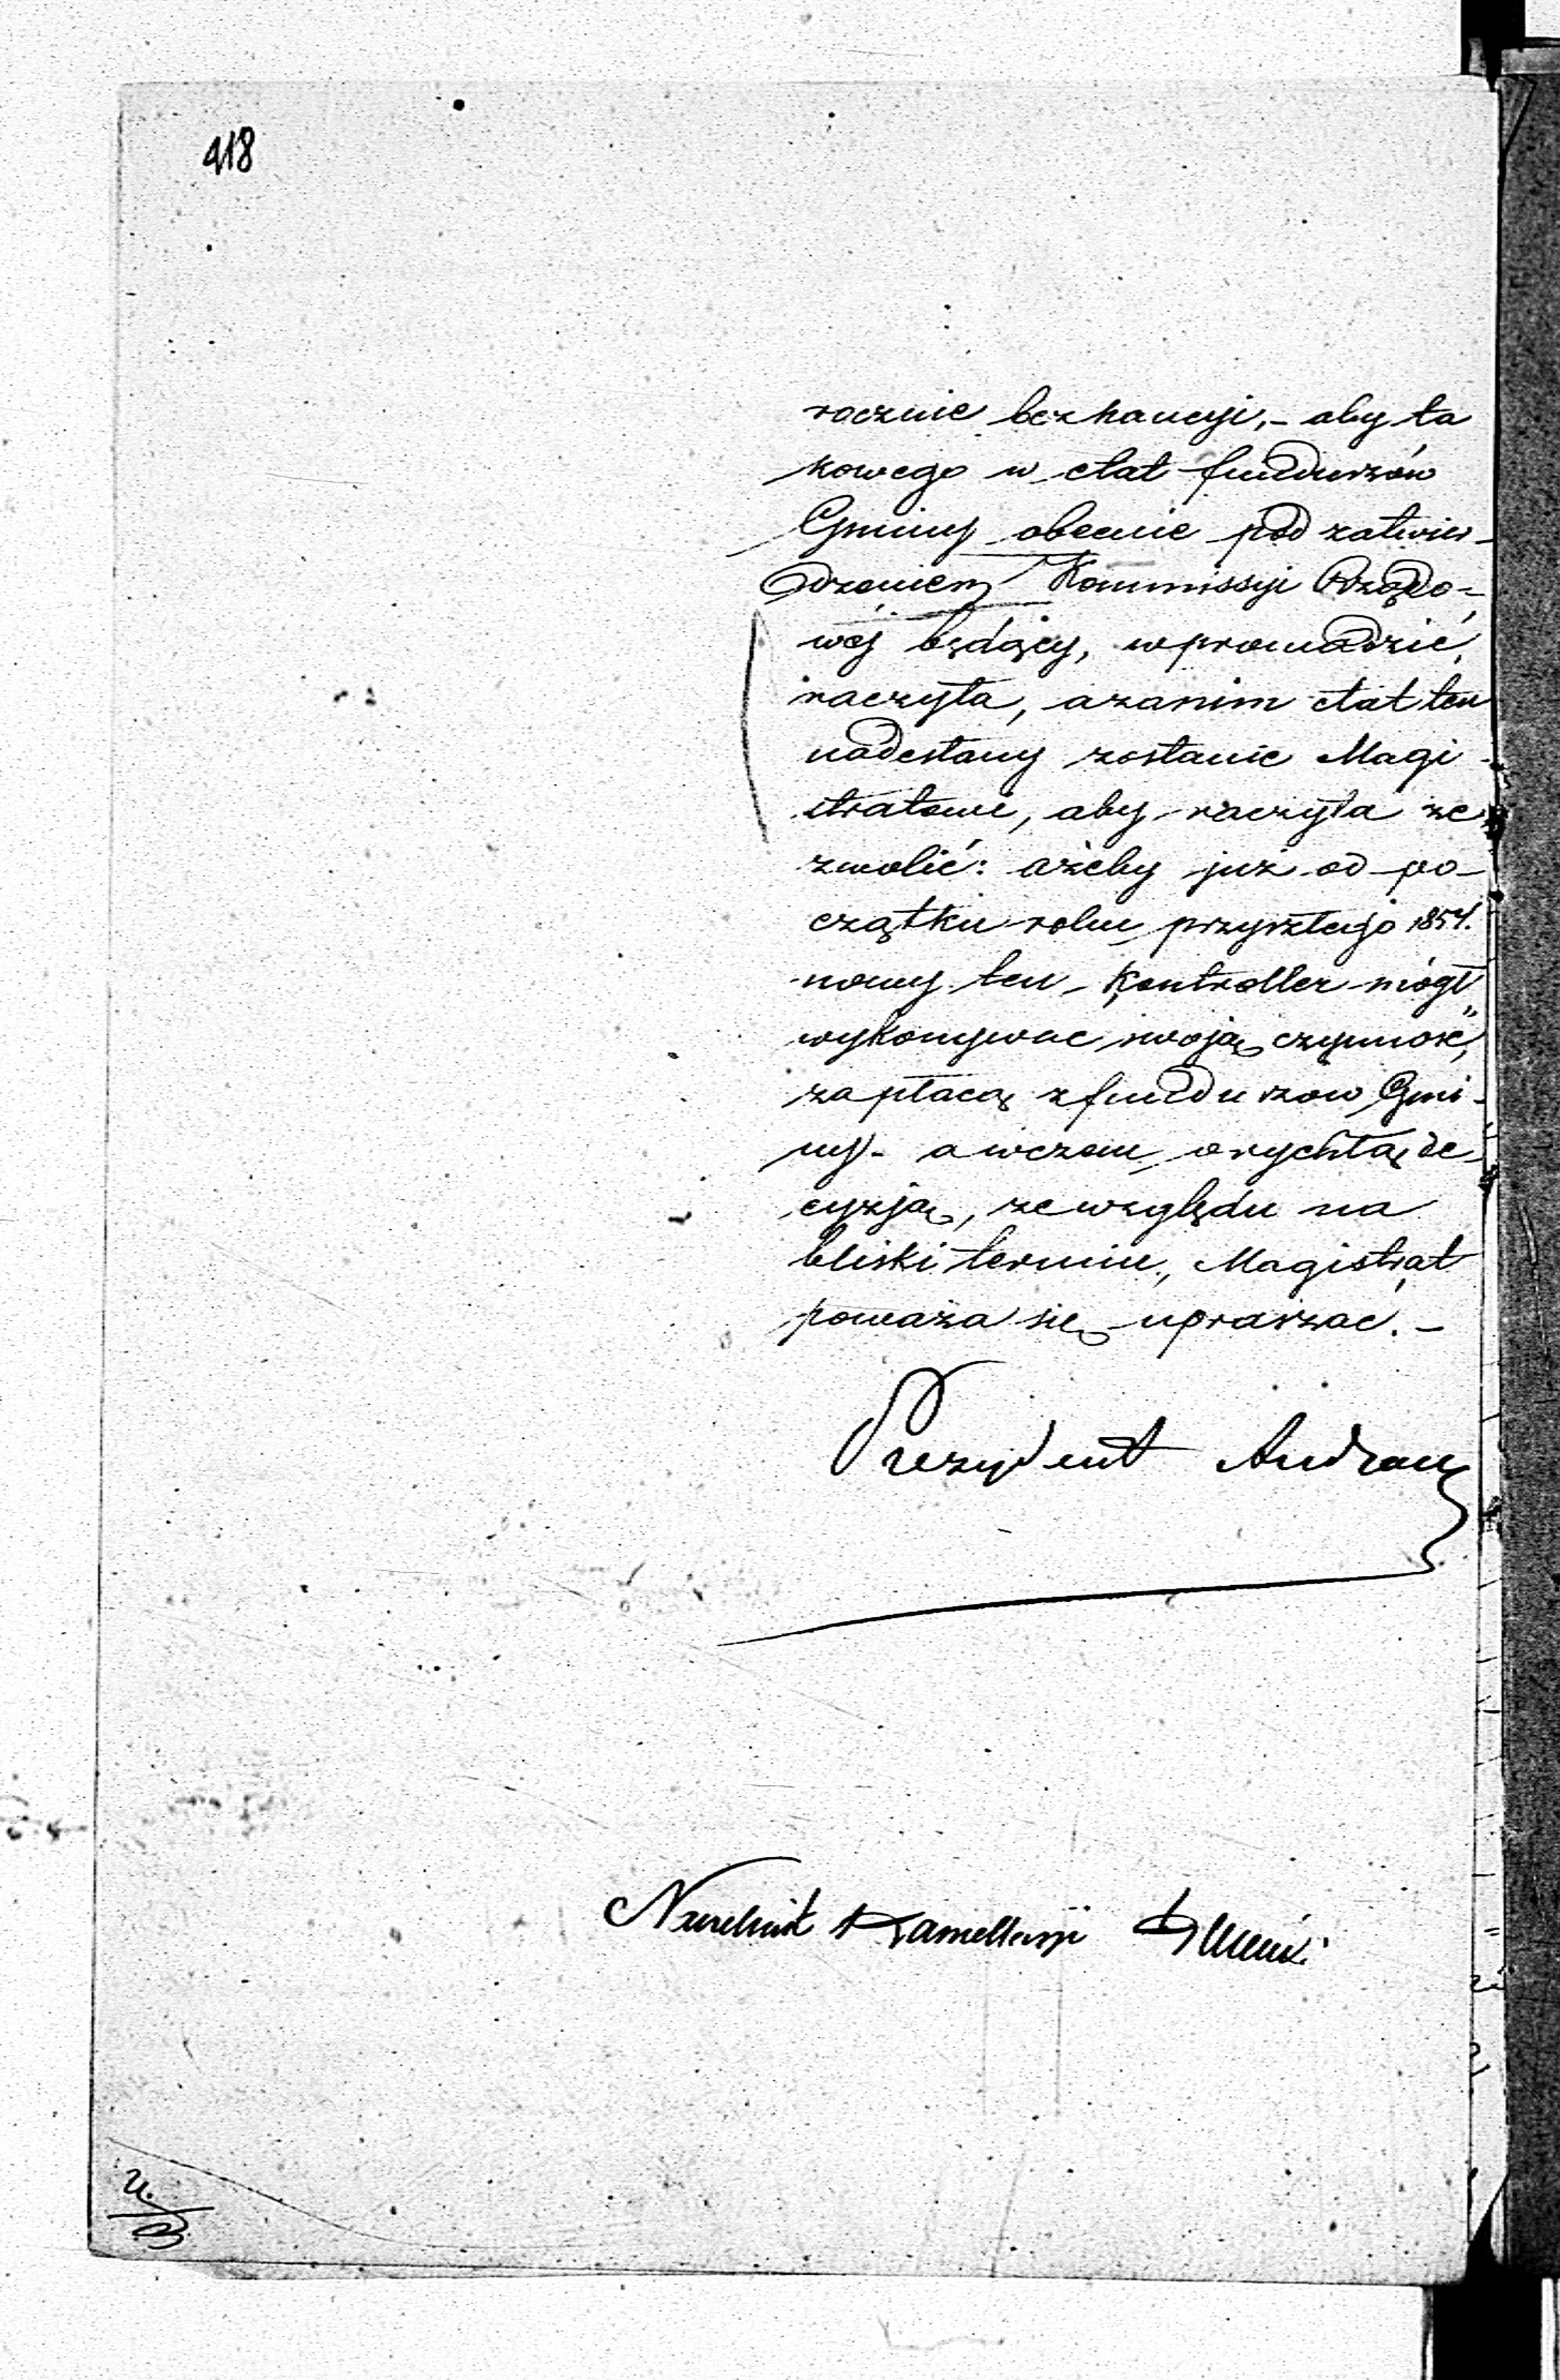 418
rocznie bez kaucyi, - aby ta
kowego w etat funduszów
Gminy obecnie pod zatwier-
dzeniem Kommissyi Rządo=
wéj będący, wprowadzić
raczyła, a zanim etat ten
nadesłany zostanie Magi-
stratowi, aby raczyła ze
zwolić: ażeby już od po-
czątku roku przyszłego 1854.
nowy ten Kontroller mógł
wykonywac swoją czynność,
za płacą z funduszow Gmi-
ny. - a w czem o rychłą de
cyzją, ze względu na
bliski termin, Magistrat
poważa się upraszać. -
Prezydent
Naczelnik Kancellaryi